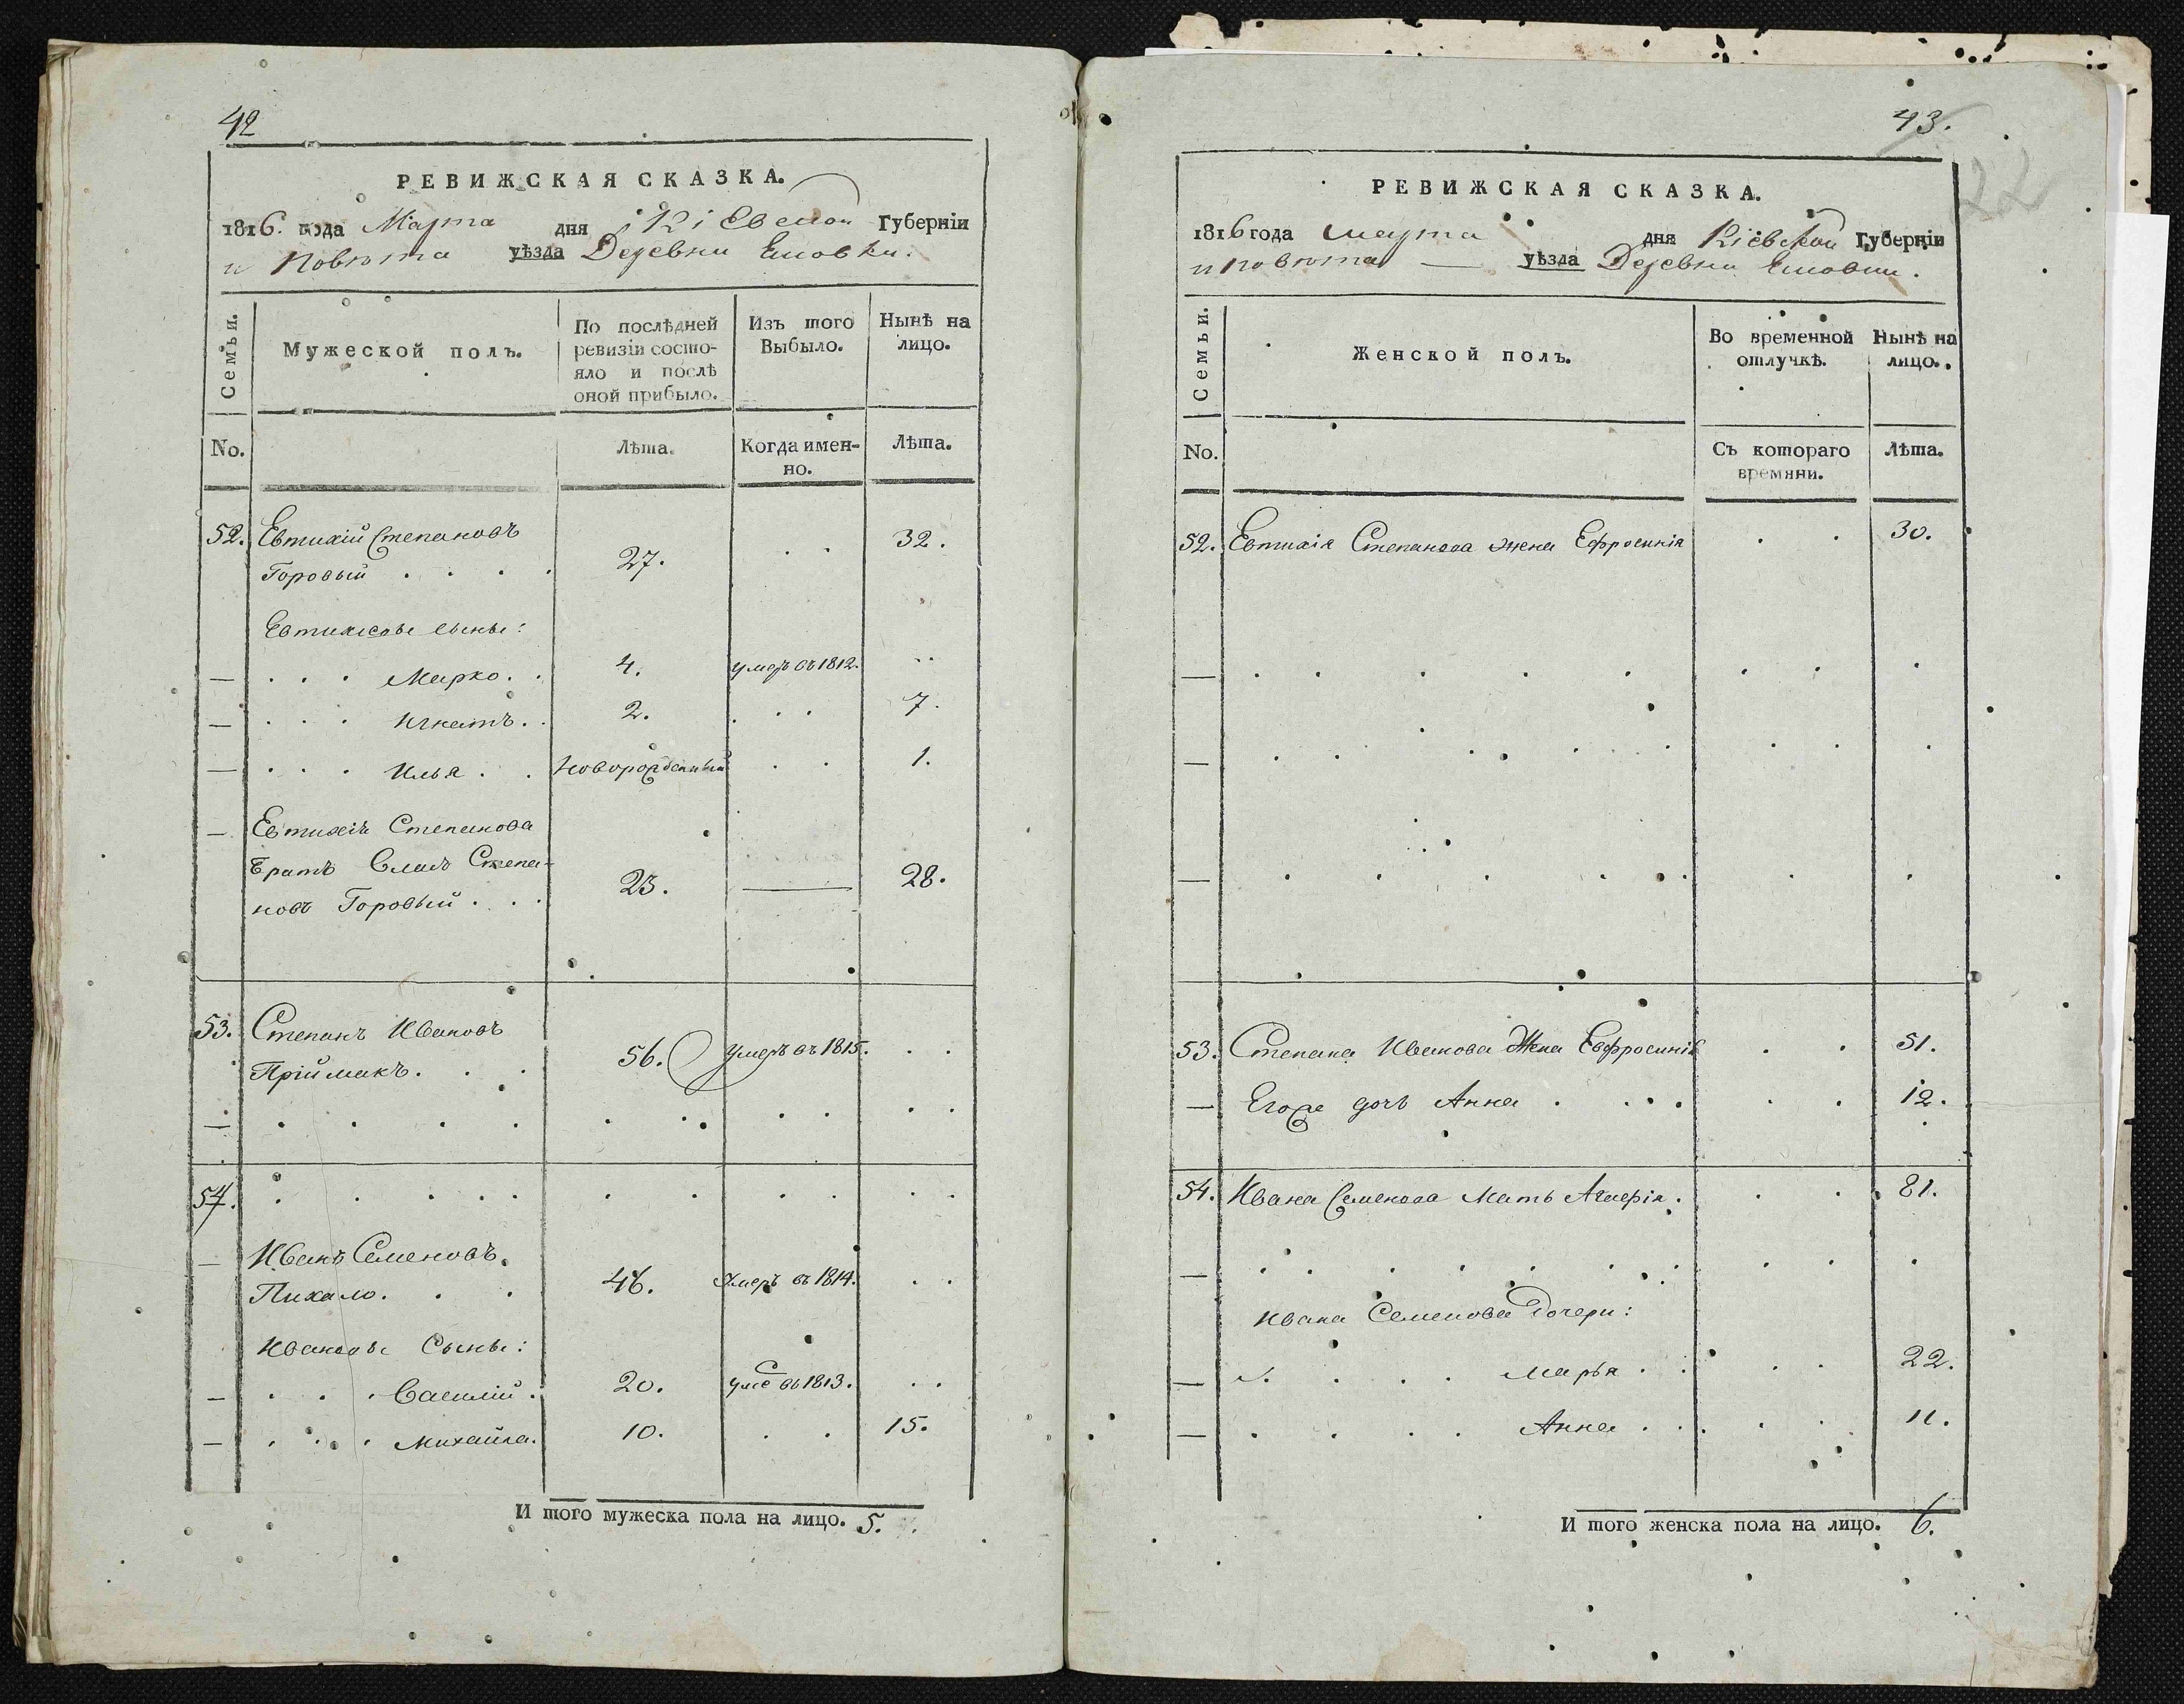 42
РЕВИЖСКАЯ СКАЗКА.
1816. года Марта дня Кіевской Губерніи
и Повѣта уѣзда Деревни
Семьи.
Мужеской полъ.
По послѣдней ревизіи состо-яло и послѣ оной прибыло.
Изъ того Выбыло.
Нынѣ на лицо.
No.
Лѣта.
Когда имен-но.
Лѣта.
52. Евтихій Степановъ
Горовый . . . . 27. . . 32.
Евтихіевы сыны:
— . . . Марко. . 4. умеръ въ 1812. . .
— . . . Игнатъ. . 2. . . . 7.
— . . . Илья . . Новорожденный . . 1.
— Евтихія Степанова
братъ Власъ Степа-
новъ Горовый . . . 23. — 28.
53. Степанъ Ивановъ
Пріймакъ. . . 56. умеръ въ 1815. . .
54.
— Иванъ Семеновъ
Пихало. . . 46. Умеръ въ 1814. . .
Ивановы Сыны:
— . . . Василій . 20. уме въ 1813. . .
— . . . Михайла. 10. . . 15.
И того мужеска пола на лицо. 5.
43.
22
РЕВИЖСКАЯ СКАЗКА.
1816 года марта дня Кіевской Губерніи
и повѣта — уѣзда Деревни
Семьи.
Женской полъ.
Во временной отлучкѣ.
Нынѣ на лицо.
No.
Съ котораго времяни.
Лѣта.
52. Евтихія Степанова жена Ефросинія . . 30.
53. Степана Иванова Жена Евфросинія . . 51.
— Егоже дочь Анна . . . . . . 12.
54. Ивана Семенова Мать . . 81.
Ивана Семенова Дочери:
— . . . . Марья . . . . 22.
— . . . . Анна . . . . 11.
И того женска пола на лицо. 6.